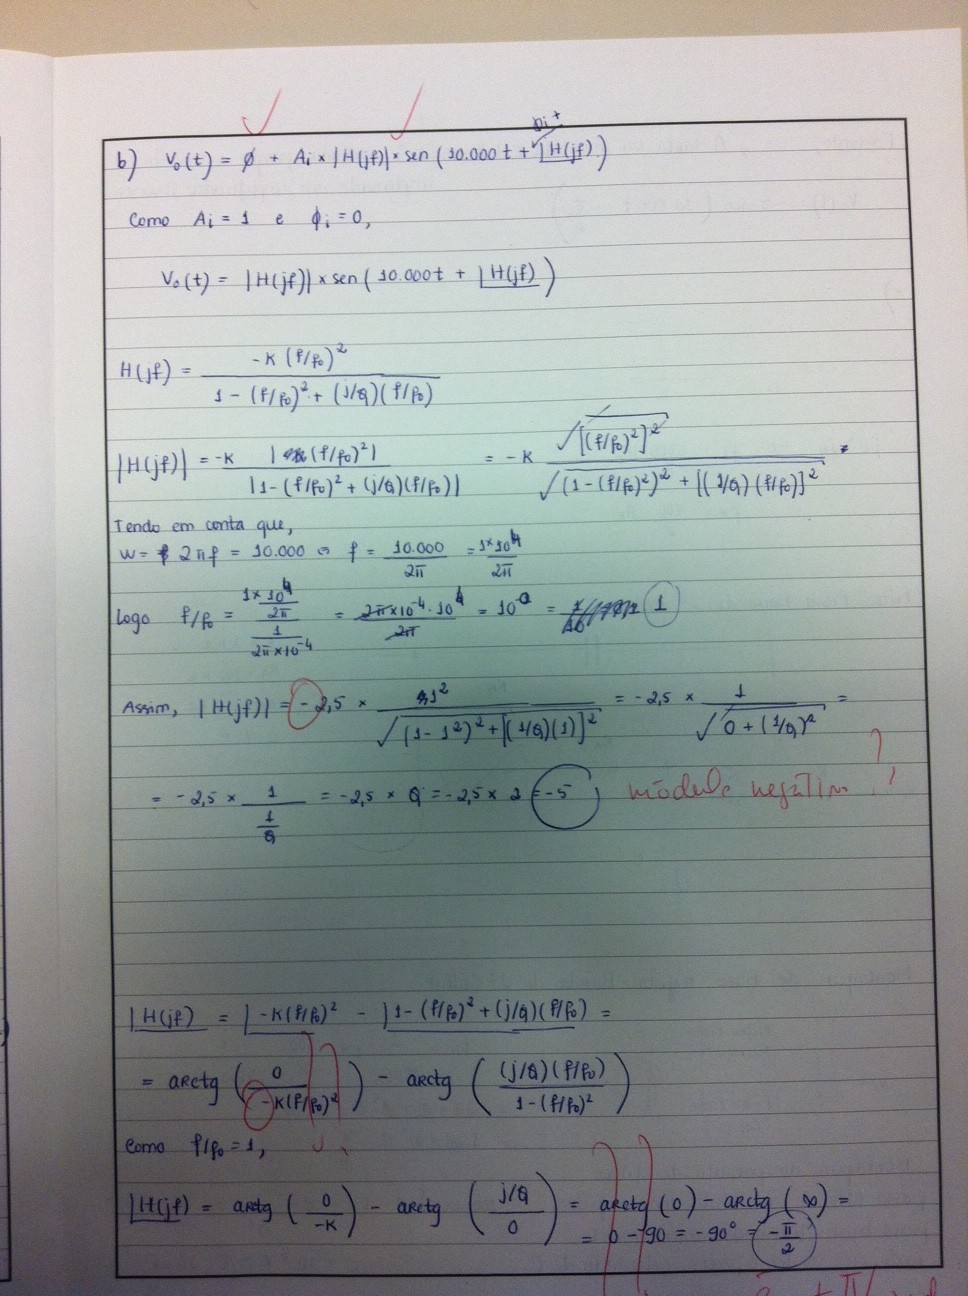 b) Vo(t) = ∅ + Ai × |H(jf)| × sen (10.000 t + ϕi + ∠H(jf))
Como Ai = 1 e ϕi = 0,
Vo(t) = |H(jf)| × sen (10.000t + ∠H(jf))
H(jf) = -K (f/fo)² / (1 - (f/fo)² + (j/Q)(f/fo))
|H(jf)| = -K |(f/fo)²| / |1 - (f/fo)² + (j/Q)(f/fo)| = -K √[(f/fo)²]² / √((1 - (f/fo)²)² + [(1/Q)(f/fo)]²) =
Tendo em conta que,
w = 2πf = 10.000 ⇔ f = 10.000/2π = 1×10⁴/2π
Logo f/fo = (1×10⁴/2π) / (1/(2π×10⁻⁴)) = 2π×10⁻⁴·10⁴/2π = 10⁻⁰ = 1
Assim, |H(jf)| = -2,5 × 1² / √((1-1²)² + [(1/Q)(1)]²) = -2,5 × 1/√(0 + (1/Q)²) =
= -2,5 × 1/(1/Q) = -2,5 × Q = -2,5 × 2 = -5 módulo negativo ??
∠H(jf) = ∠-K(f/fo)² - ∠1 - (f/fo)² + (j/Q)(f/fo) =
= arctg (0 / -K(f/fo)²) - arctg ((j/Q)(f/fo) / (1-(f/fo)²))
Como f/fo = 1,
∠H(jf) = arctg (0/-K) - arctg ((j/Q)/0) = arctg (0) - arctg (∞) =
= 0 - 90 = -90° = -π/2